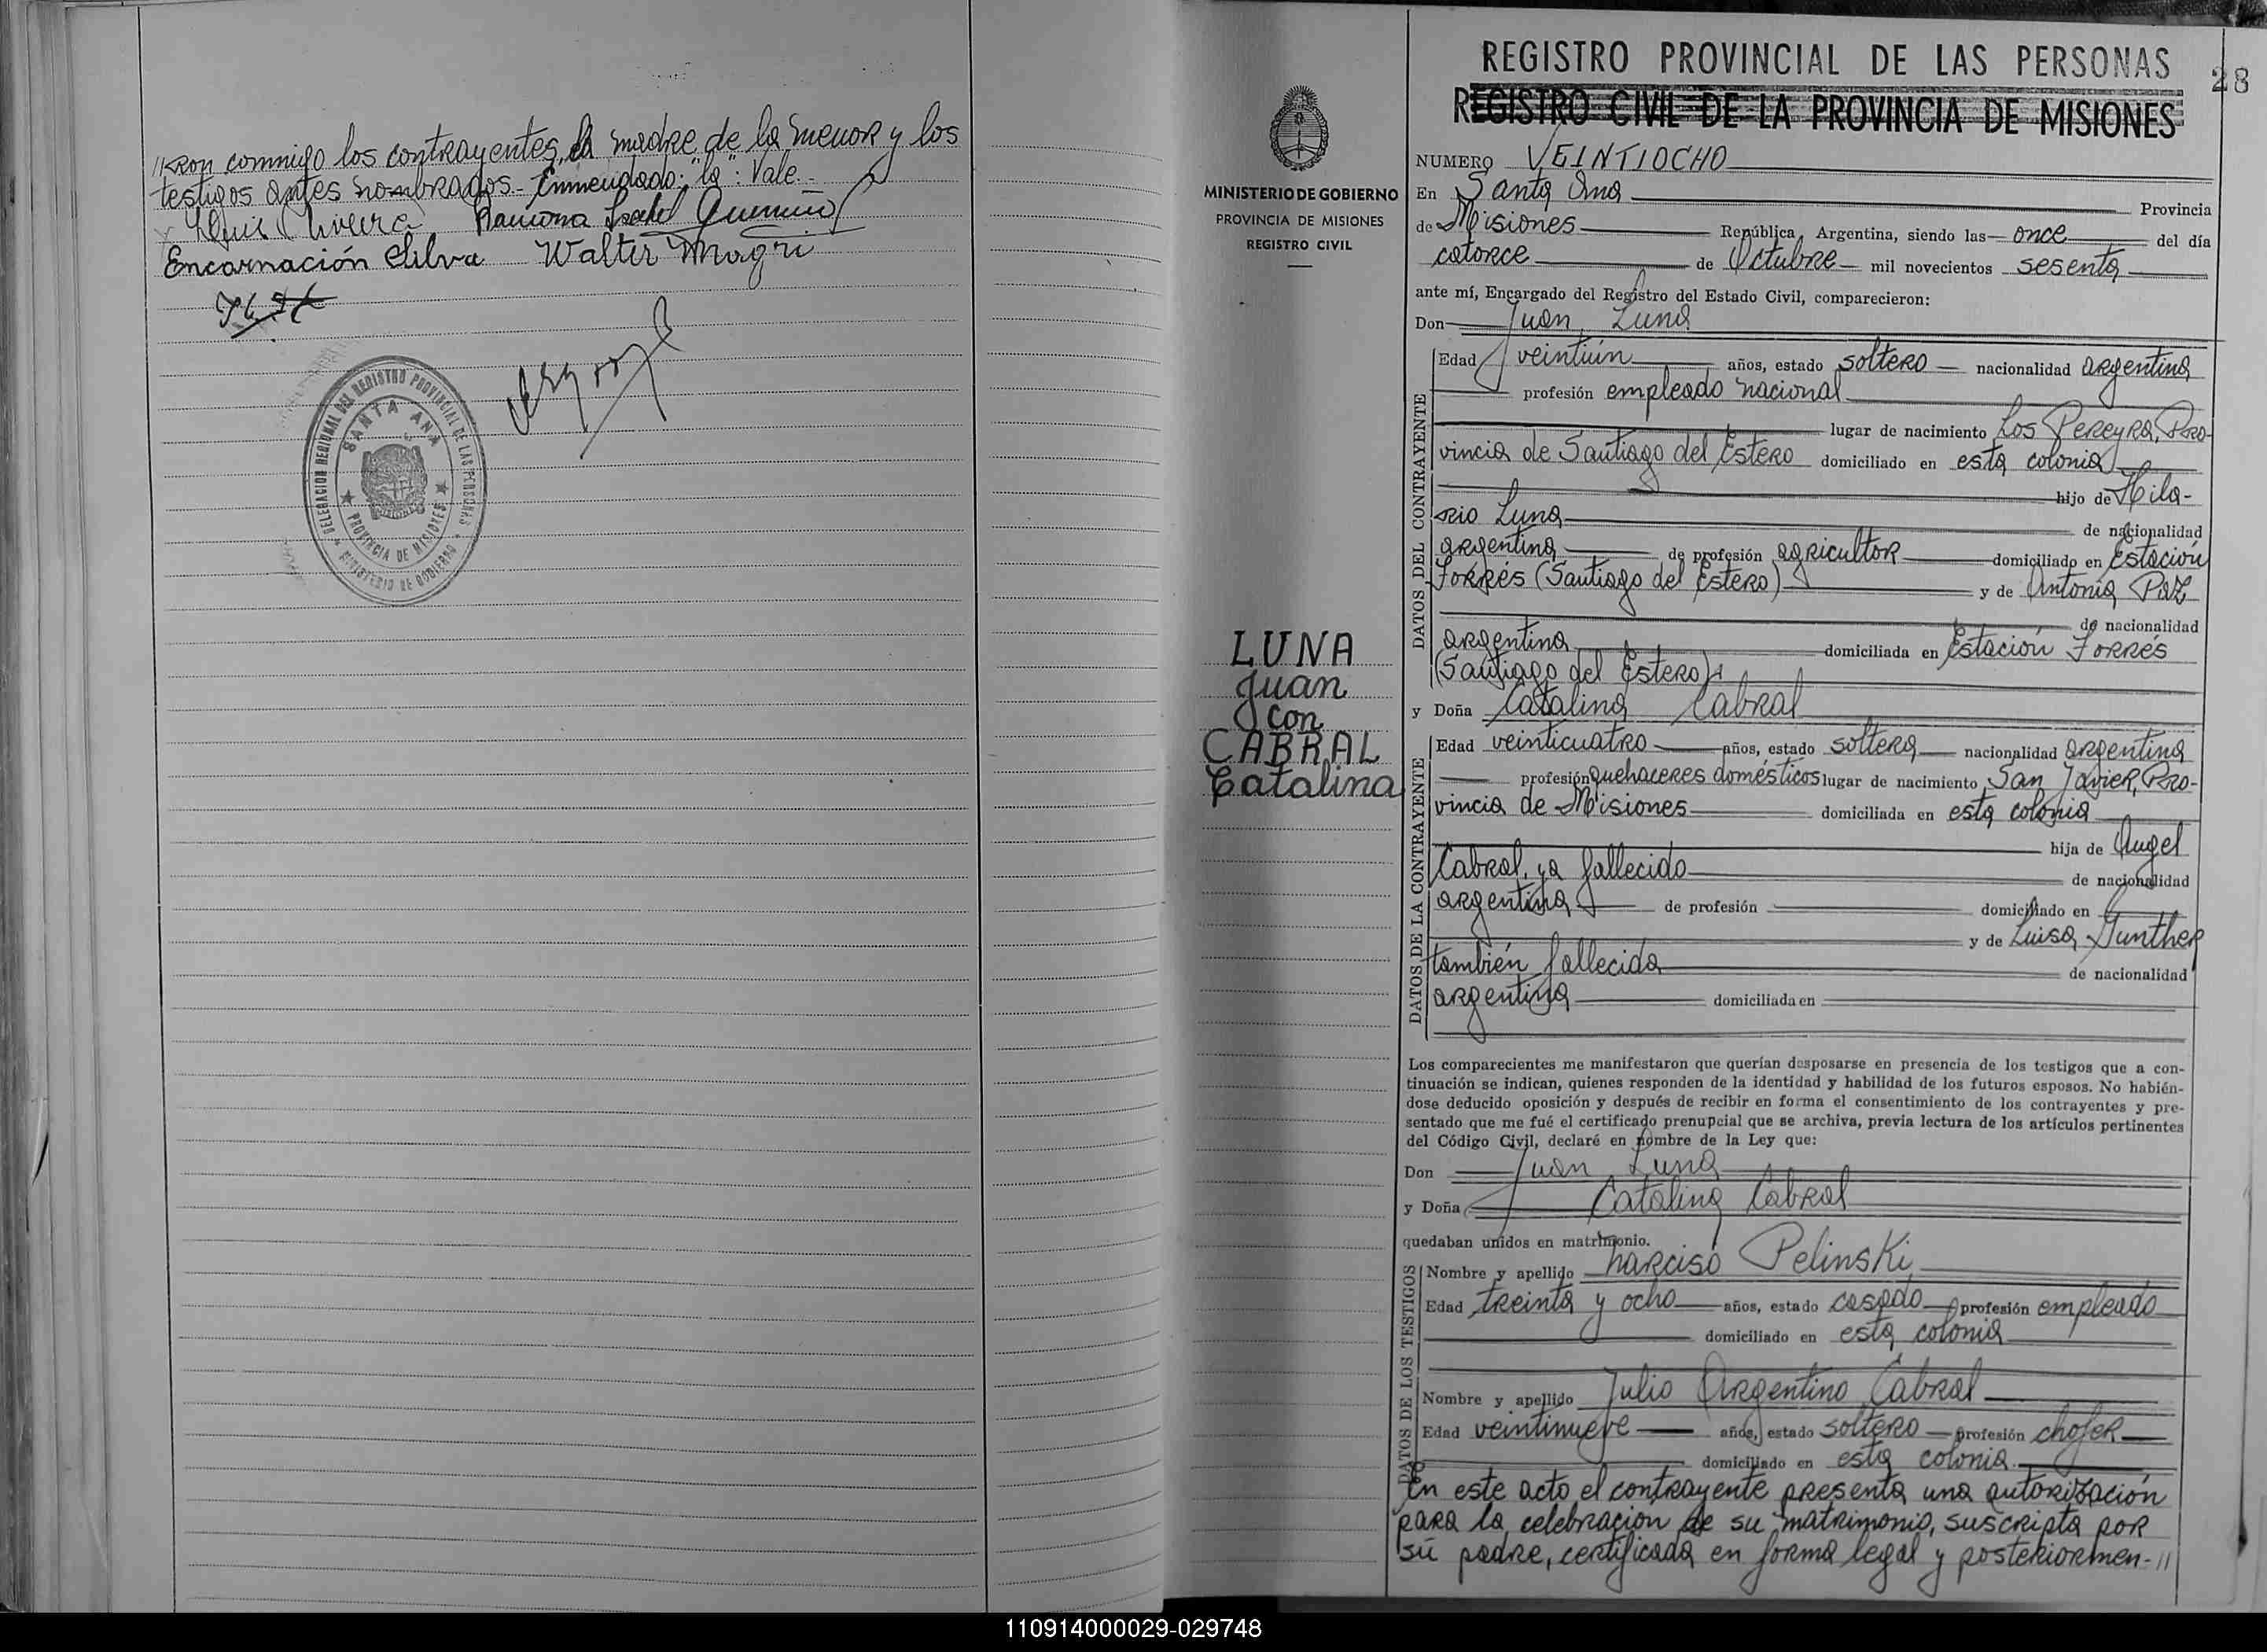 //ron conmigo los contrayentes, la madre de la menor y los
testigos antes nombrados.- Enmendado: "la": Vale.-
Ramona Isabel
Encarnación Silva Walter Magri
DELEGACION REGIONAL DEL REGISTRO PROVINCIAL DE LAS PERSONAS
SANTA ANA
PROVINCIA DE MISIONES
MINISTERIO DE GOBIERNO
MINISTERIO DE GOBIERNO
PROVINCIA DE MISIONES
REGISTRO CIVIL
LUNA
Juan
con
CABRAL
Catalina
REGISTRO PROVINCIAL DE LAS PERSONAS
28
REGISTRO CIVIL DE LA PROVINCIA DE MISIONES
NUMERO VEINTIOCHO
En Santa Ana Provincia
de Misiones República Argentina, siendo las once del día
catorce de Octubre mil novecientos sesenta
ante mí, Encargado del Registro del Estado Civil, comparecieron:
Don Juan Luna
DATOS DEL CONTRAYENTE
Edad veintiún años, estado soltero nacionalidad argentina
profesión empleado nacional
lugar de nacimiento Los Pereyra, Pro-
vincia de Santiago del Estero domiciliado en esta colonia
hijo de Hila-
rio Luna de nacionalidad
argentina de profesión agricultor domiciliado en Estación
Torrés (Santiago del Estero) y de Antonia Paz
de nacionalidad
argentina domiciliada en Estación Torrés
(Santiago del Estero)
y Doña Catalina Cabral
DATOS DE LA CONTRAYENTE
Edad veinticuatro años, estado soltera nacionalidad argentina
profesión quehaceres domésticos lugar de nacimiento San Javier, Pro-
vincia de Misiones domiciliada en esta colonia
hija de Angel
Cabral, ya fallecido de nacionalidad
argentina de profesión domiciliado en
y de Luisa Gunther
también fallecida de nacionalidad
argentina domiciliada en
Los comparecientes me manifestaron que querían desposarse en presencia de los testigos que a con-
tinuación se indican, quienes responden de la identidad y habilidad de los futuros esposos. No habién-
dose deducido oposición y después de recibir en forma el consentimiento de los contrayentes y pre-
sentado que me fué el certificado prenupcial que se archiva, previa lectura de los artículos pertinentes
del Código Civil, declaré en nombre de la Ley que:
Don Juan Luna
y Doña Catalina Cabral
quedaban unidos en matrimonio.
DATOS DE LOS TESTIGOS
Nombre y apellido Narciso Pelinski
Edad treinta y ocho años, estado casado profesión empleado
domiciliado en esta colonia
Nombre y apellido Julio Argentino Cabral
Edad veintinueve años, estado soltero profesión chofer
domiciliado en esta colonia
En este acto el contrayente presenta una autorización
para la celebración de su matrimonio, suscripta por
su padre, certificada en forma legal y posteriormen-//
110914000029-029748